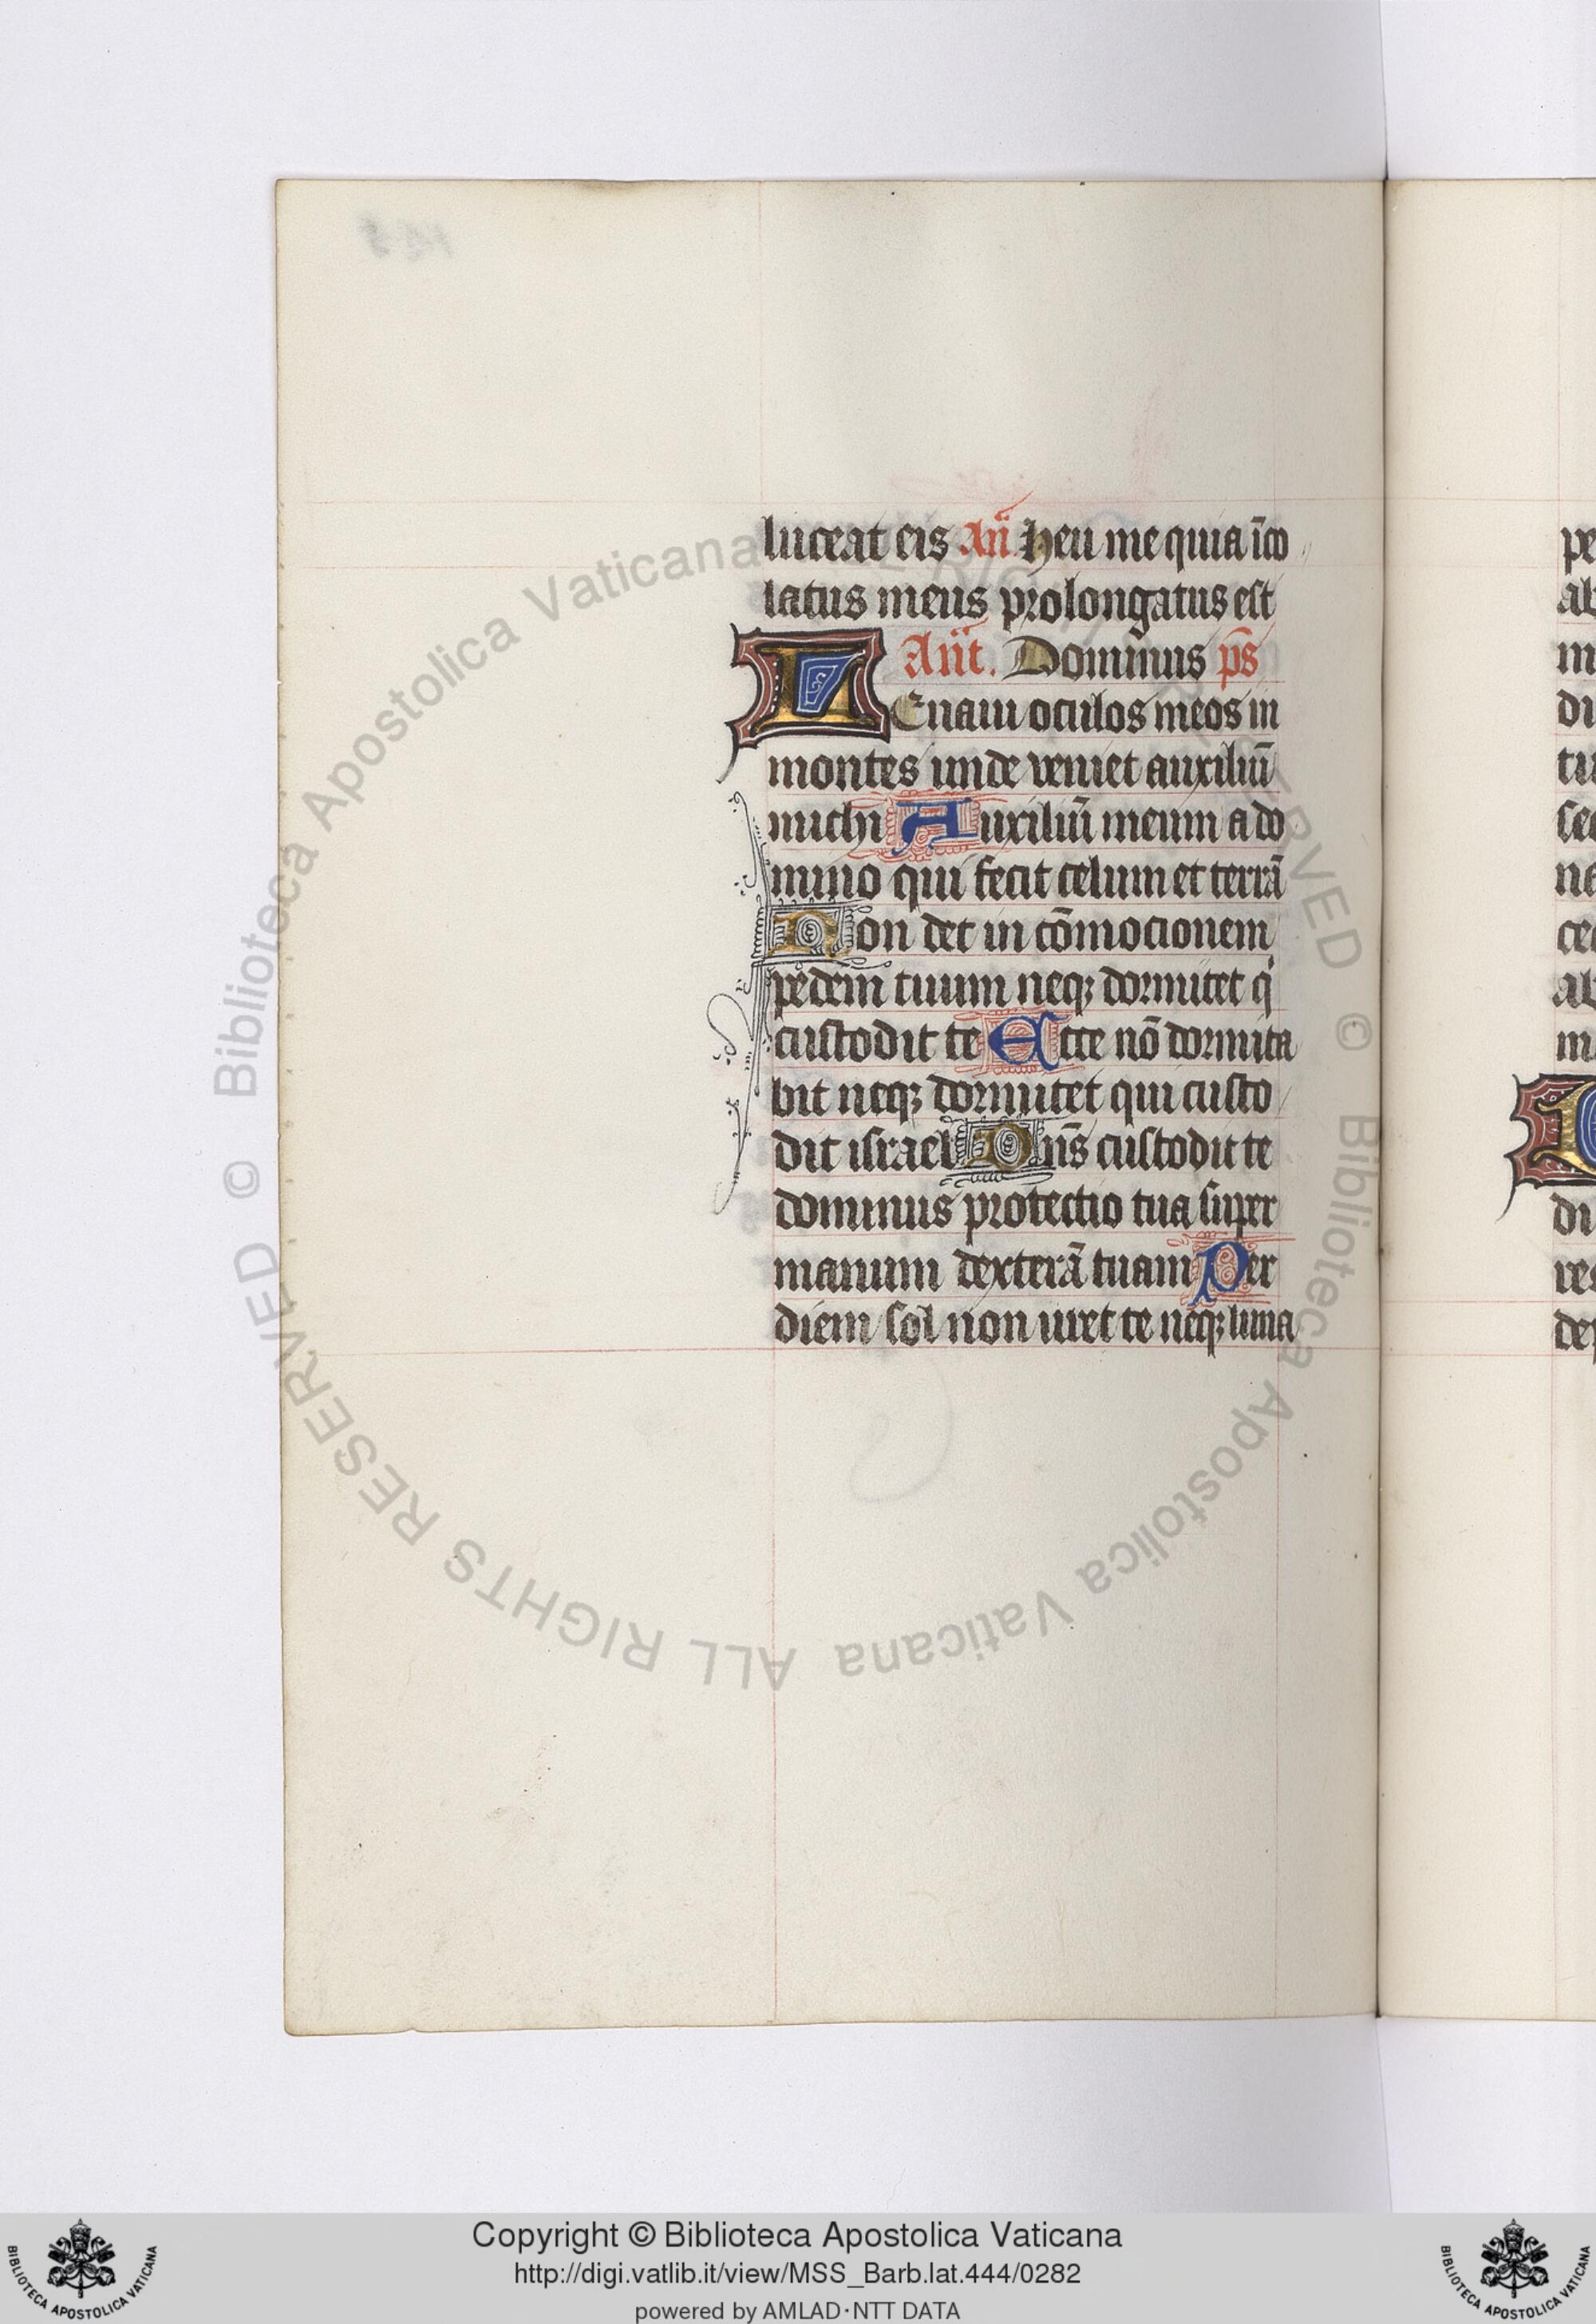 luceat eis Añ. Heu me quia īco
latus meus prolongatus est
Añt. Dominus p̄s
LEuaui oculos meos in
montes unde veniet auxiliū
michi Auxiliū meum a do
mino qui fecit celum et terrā
Non det in cōmocionem
pedem tuum neqꝫ dormitet qͥ
custodit te Ecce nō dormita
bit neqꝫ dormitet qui custo
dit israel Dn̄s custodit te
dominus protectio tua super
manum dexterā tuam Per
diem sol non uret te neqꝫ luna
pe
ab
m
di
tu
sec
ne
ce
ab
m
di
re
dep
© Biblioteca Apostolica Vaticana ALL RIGHTS RESERVED © Biblioteca Apostolica Vaticana ALL RIGHTS RESERVED
Copyright © Biblioteca Apostolica Vaticana
http://digi.vatlib.it/view/MSS_Barb.lat.444/0282
powered by AMLAD·NTT DATA
BIBLIOTECA APOSTOLICA VATICANA
BIBLIOTECA APOSTOLICA VATICANA